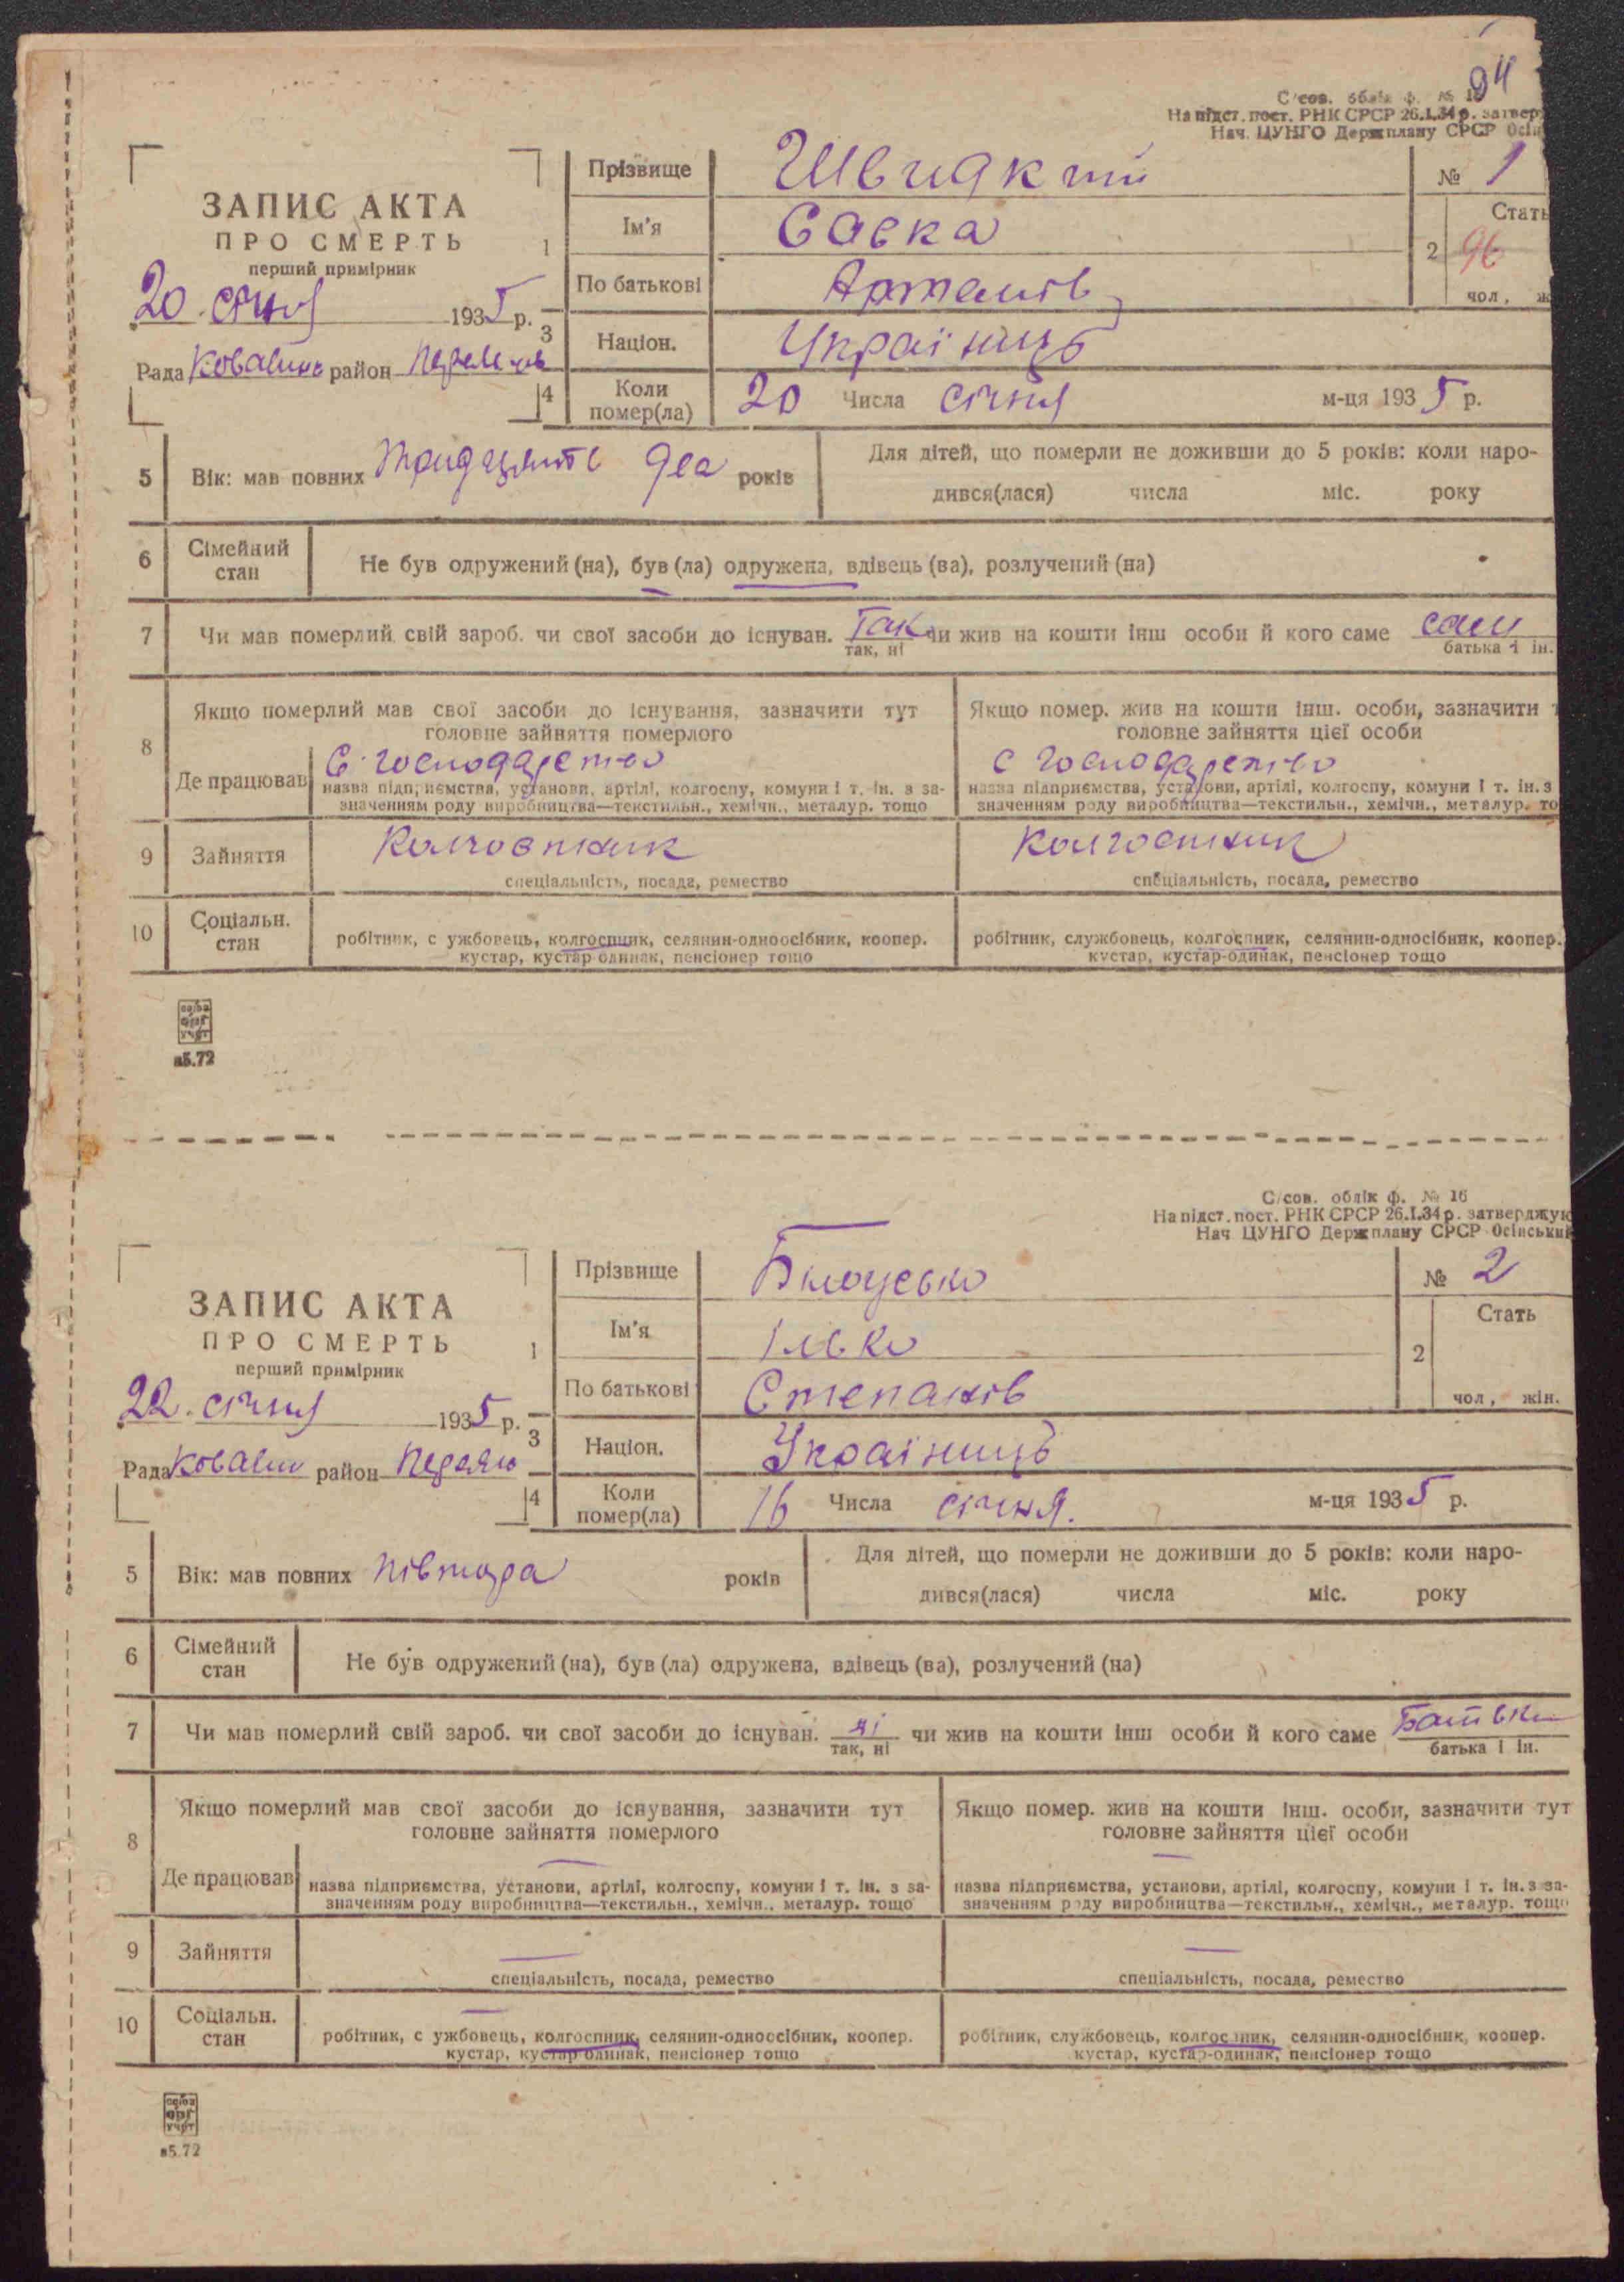 94
С/сов. облік ф. № 16
На підст. пост. РНК СРСР 26.I.34 р. затвер
Нач. ЦУНГО Держплану СРСР Осін
ЗАПИС АКТА
ПРО СМЕРТЬ
перший примірник
20. січня 1935 р.
Рада район
1 Прізвище Швидкий
№ 1
Ім'я Савка
2 Стать
96
чол, ж
По батькові
3 Націон. Українець
4 Коли помер(ла) 20 Числа січня м-ця 1935 р.
5 Вік: мав повних два років
Для дітей, що померли не доживши до 5 років: коли наро-
дився(лася) числа міс. року
6 Сімейний стан Не був одружений (на), був (ла) одружена, вдівець (ва), розлучений (на)
7 Чи мав померлий свій зароб. чи свої засоби до існуван. Так чи жив на кошти інш особи й кого саме сам
так, ні батька і ін.
8 Якщо померлий мав свої засоби до існування, зазначити тут
головне зайняття померлого
Якщо помер. жив на кошти інш. особи, зазначити т
головне зайняття цієї особи
Де працював С господарство
с господарство
назва підприємства, установи, артілі, колгоспу, комуни і т. ін. з за-
значенням роду виробництва—текстильн., хемічн., металур. тощо
назва підприємства, установи, артілі, колгоспу, комуни і т. ін. з
значенням роду виробництва—текстильн., хемічн., металур. то
9 Зайняття Колгоспник
Колгоспник
спеціальність, посада, ремество
спеціальність, посада, ремество
10 Соціальн. стан
робітник, с ужбовець, колгоспник, селянин-одноосібник, коопер.
кустар, кустар одинак, пенсіонер тощо
робітник, службовець, колгоспник, селянин-односібник, коопер.
кустар, кустар-одинак, пенсіонер тощо
союз
орг
учет
в5.72
С/сов. облік ф. № 16
На підст. пост. РНК СРСР 26.I.34 р. затверджую
Нач ЦУНГО Держплану СРСР Осінський
ЗАПИС АКТА
ПРО СМЕРТЬ
перший примірник
22. січня 1935 р.
Рада район
1 Прізвище
№ 2
Ім'я Ілько
2 Стать
чол, жін.
По батькові Степанів
3 Націон. Українець
4 Коли помер(ла) 16 Числа січня. м-ця 1935 р.
5 Вік: мав повних півтора років
Для дітей, що померли не доживши до 5 років: коли наро-
дився(лася) числа міс. року
6 Сімейний стан Не був одружений (на), був (ла) одружена, вдівець (ва), розлучений (на)
7 Чи мав померлий свій зароб. чи свої засоби до існуван. ні чи жив на кошти інш особи й кого саме Батьки
так, ні батька і ін.
8 Якщо померлий мав свої засоби до існування, зазначити тут
головне зайняття померлого
Якщо помер. жив на кошти інш. особи, зазначити тут
головне зайняття цієї особи
Де працював
назва підприємства, установи, артілі, колгоспу, комуни і т. ін. з за-
значенням роду виробництва—текстильн., хемічн., металур. тощо
назва підприємства, установи, артілі, колгоспу, комуни і т. ін. з за-
значенням роду виробництва—текстильн., хемічн., металур. тощо
9 Зайняття
спеціальність, посада, ремество
спеціальність, посада, ремество
10 Соціальн. стан
робітник, с ужбовець, колгоспник, селянин-одноосібник, коопер.
кустар, кустар одинак, пенсіонер тощо
робітник, службовець, колгоспник, селянин-односібник, коопер.
кустар, кустар-одинак, пенсіонер тощо
союз
орг
учет
в5.72